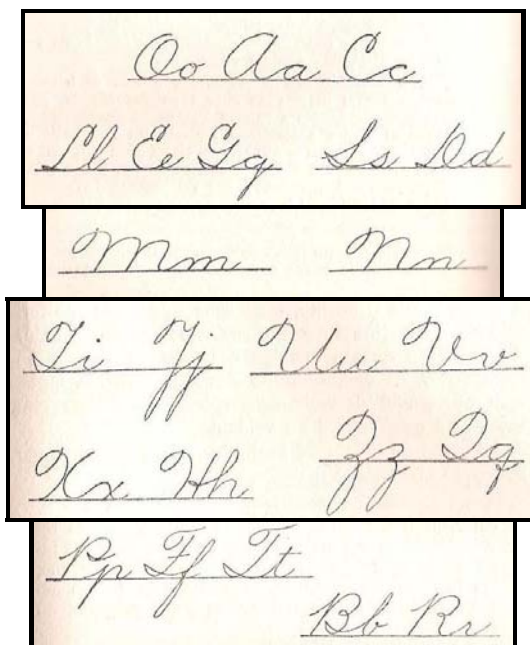 Oo Aa Cc
Ll Ee Gg Ss Dd
Mm Nn
Ii Jj Uu Vv
Xx Hh Zz Qq
Pp Ff Tt
Bb Rr